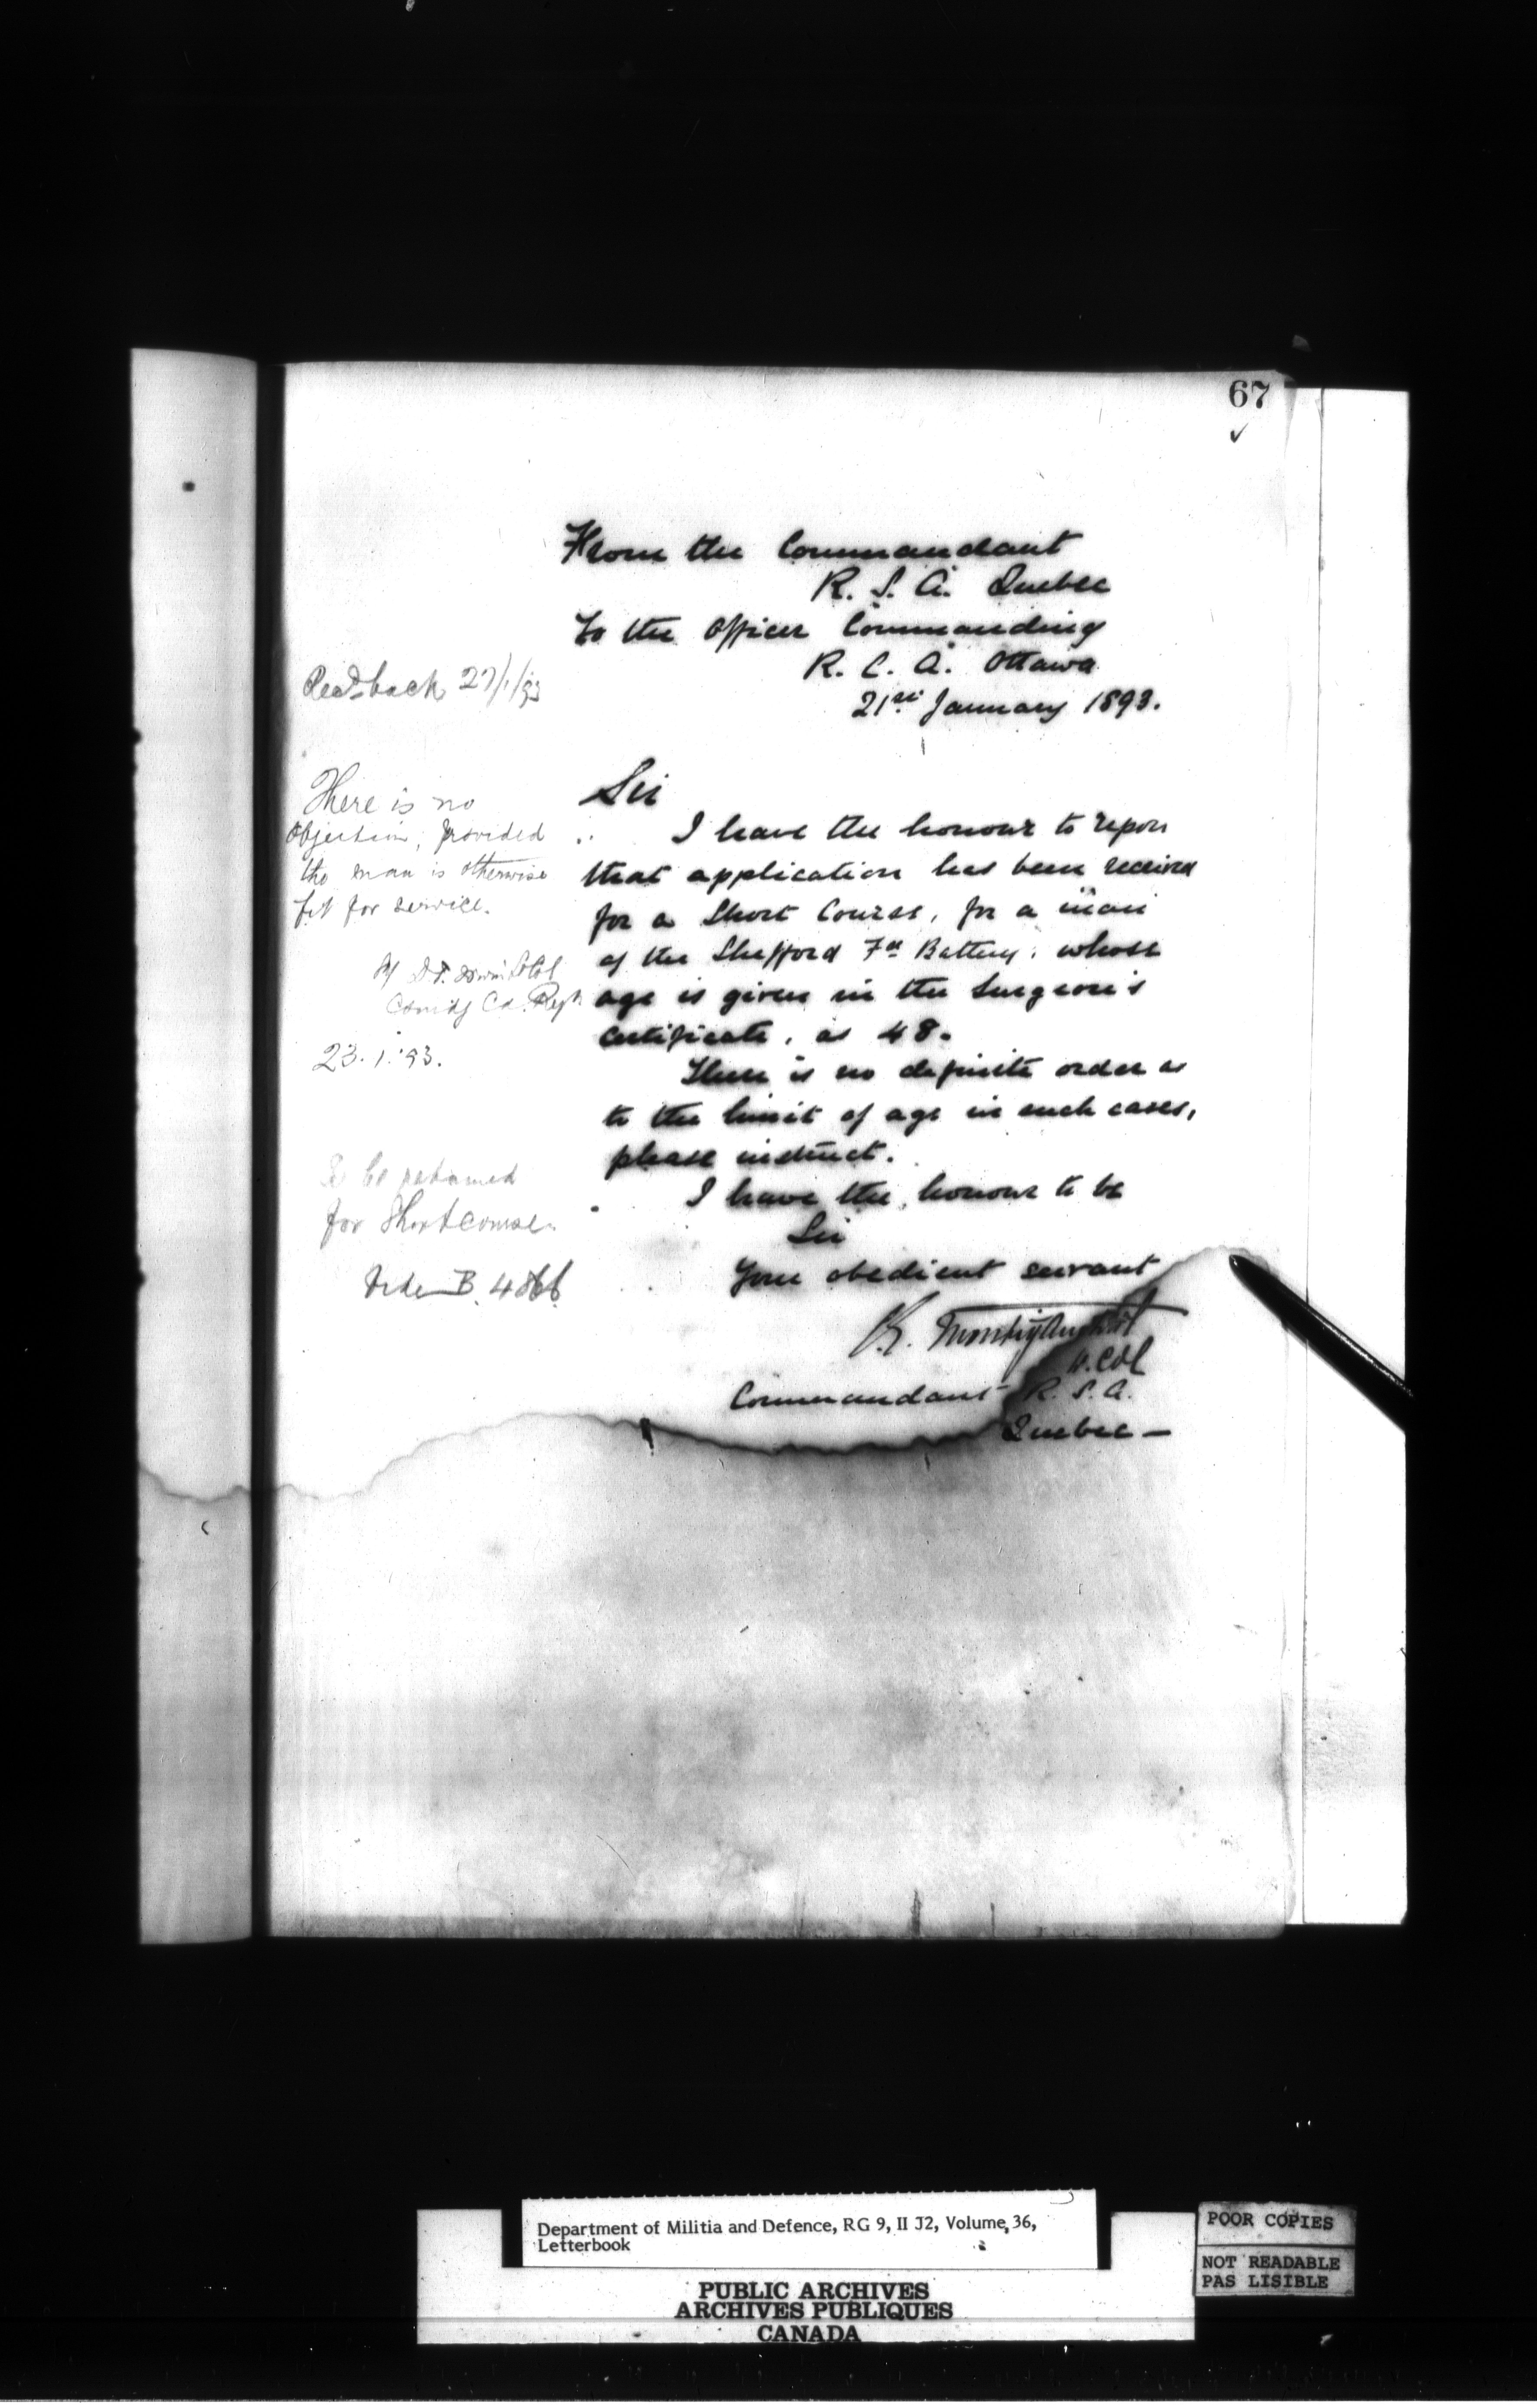 67
From the Commandant
R. S. A. Quebec
To the Officer Commanding
R. C. A. Ottawa
21st January 1893.
Sir
I have the honour to report
that application has been received
for a Short Course, for a man
of the Shefford Fd Battery, whose
age is given in the Surgeon's
Certificate, as 48.
There is no definite order as
to the limit of age in such cases,
please instruct.
I have the honour to be
Sir
Your obedient servant
Lt. Col
Commandant R. S. A.
Quebec —
Recd back 27/1/93
There is no
Objection, provided
the man is otherwise
fit for service.
D.T. Irwin Lt Col
Comdg Ca. Regt
23.1.93.
To be returned
for Short course.
Vide B. 4866
Department of Militia and Defence, RG 9, II J2, Volume 36,
Letterbook
PUBLIC ARCHIVES
ARCHIVES PUBLIQUES
CANADA
POOR COPIES
NOT READABLE
PAS LISIBLE